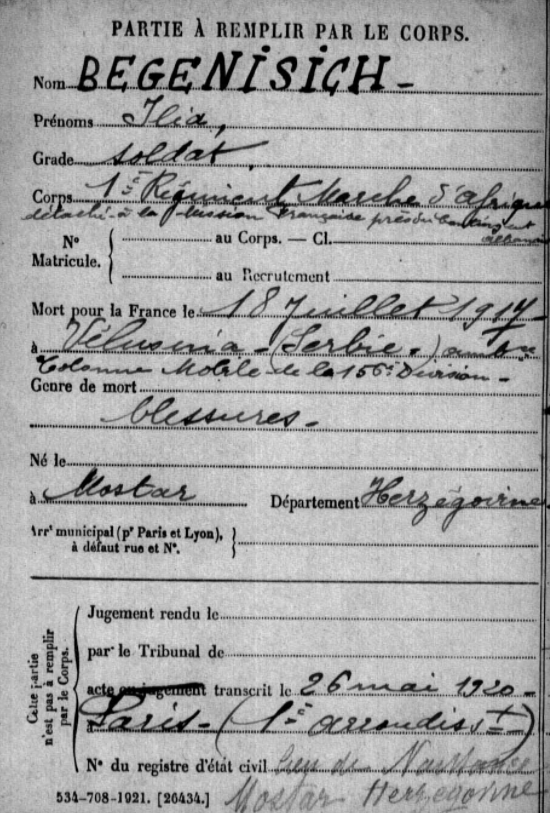 PARTIE À REMPLIR PAR LE CORPS.
Nom BEGENISICH -
Prénoms Ilia,
Grade soldat,
Corps 1er Régiment Marche d'Afrique
détaché à la Mission Française près du contingent albanais
N° Matricule. { au Corps. — Cl.
au Recrutement
Mort pour la France le 18 Juillet 1917
à Vélusina - (Serbie.)
Colonne Mobile de la 156e Division -
Genre de mort
blessures -
Né le
à Mostar Département Herzégovine
Arrt municipal (pr Paris et Lyon), à défaut rue et N°. }
Cette partie n'est pas à remplir par le Corps. {
Jugement rendu le
par le Tribunal de
acte ou jugement transcrit le 26 mai 1920 -
à Paris - (1er arrondisst)
N° du registre d'état civil Lieu de Naissance
534-708-1921. [26434.] Mostar Herzégovine